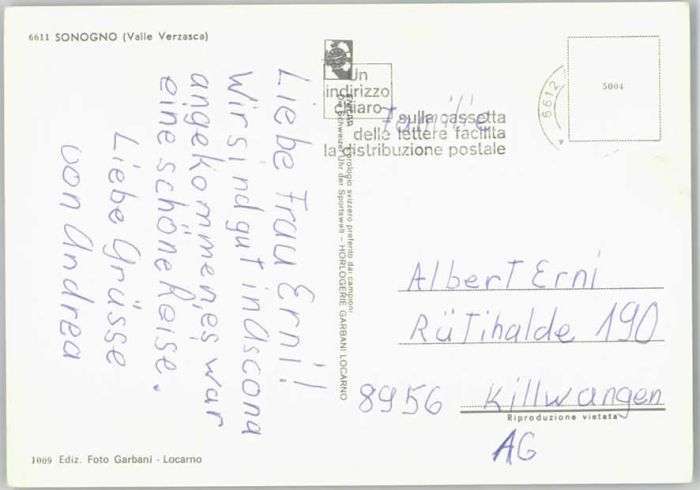 6611 SONOGNO (Valle Verzasca)
Liebe Frau Erni!
Wir sind gut in Ascona
angekommen, es war
eine schöne Reise.
Liebe Grüsse
von Andrea
1009 Ediz. Foto Garbani - Locarno
L'orologio svizzero preferito dai campioni
Die Schweizer Uhr der Sportswelt - HORLOGERIE GARBANI LOCARNO
Un
indirizzo
chiaro
sulla cassetta
delle lettere facilita
la distribuzione postale
6612
5004
Familie
Albert Erni
Rütihalde 190
8956 Killwangen
Riproduzione vietata
AG